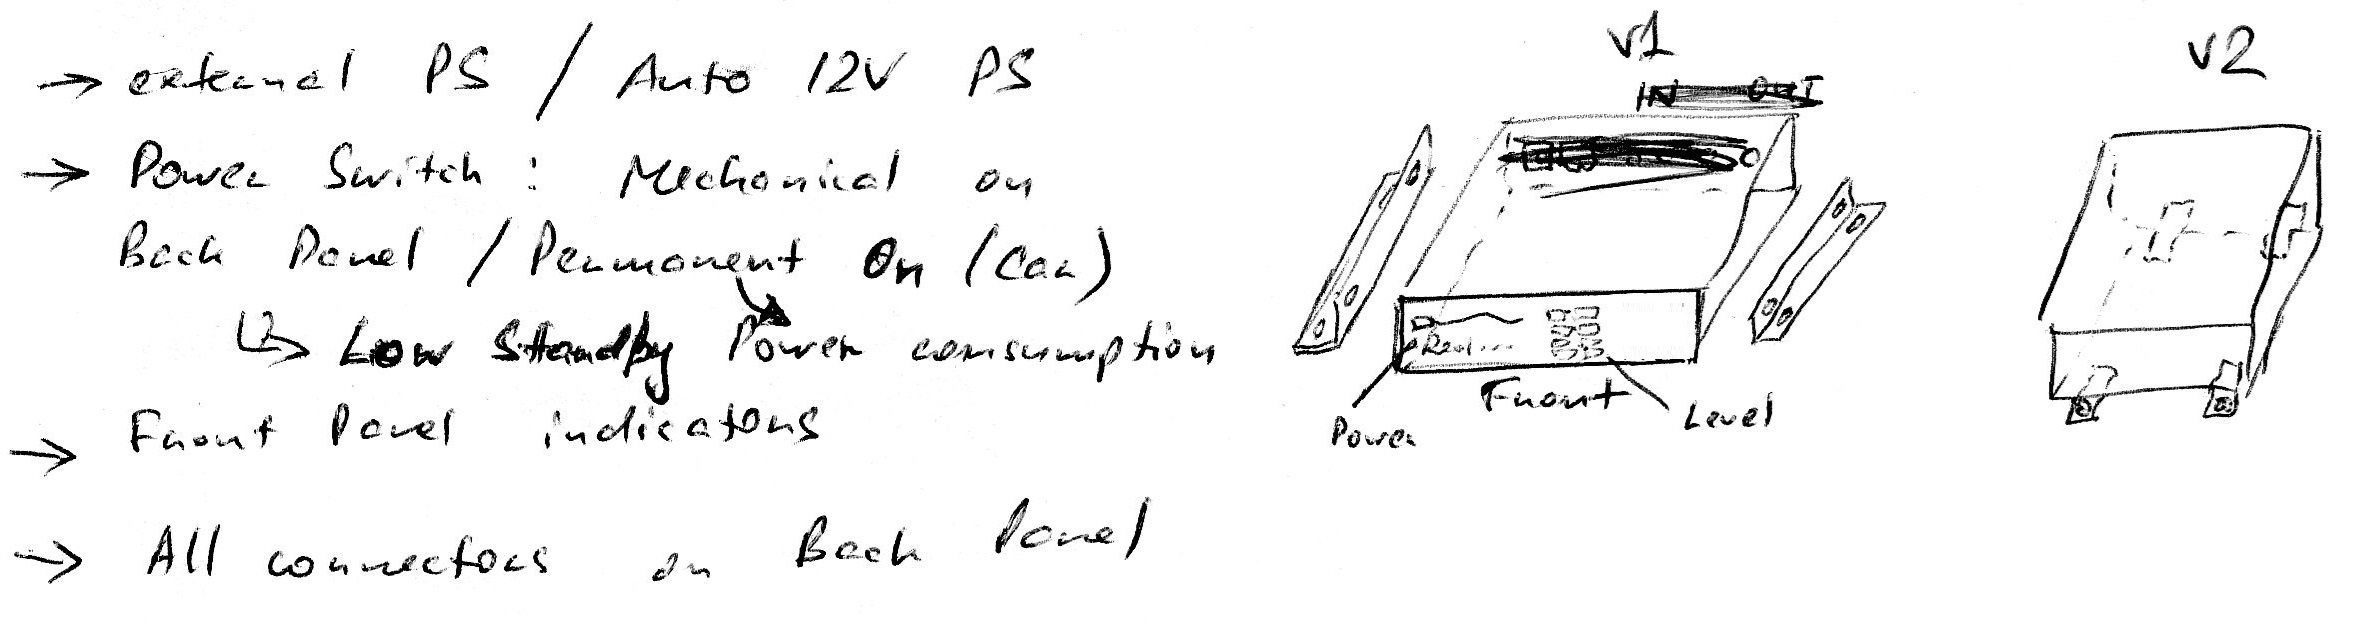 → external PS / Auto 12V PS
→ Power Switch : Mechanical on
Back Panel / Permanent On (Car)
↳ Low Standby Power consumption
→ Front Panel indicators
→ All connectors on Back Panel
V1
IN OUT
Front
Power
Level
V2